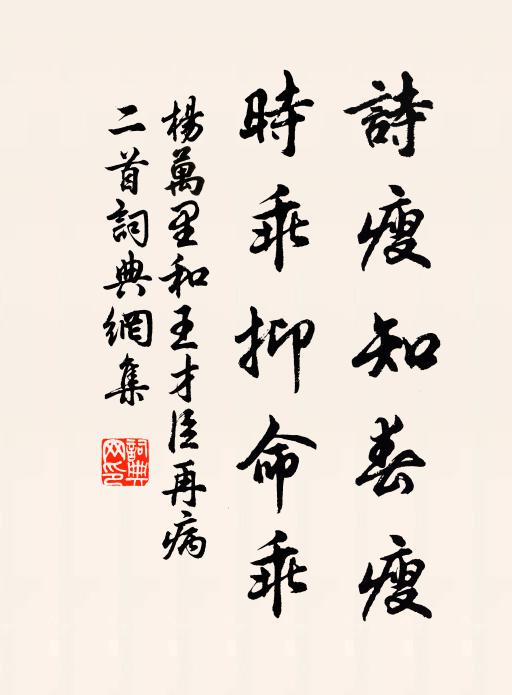 詩瘦知春瘦
時乖抑命乖
楊萬里和王才臣再病
二首詞典網集
詞典網印